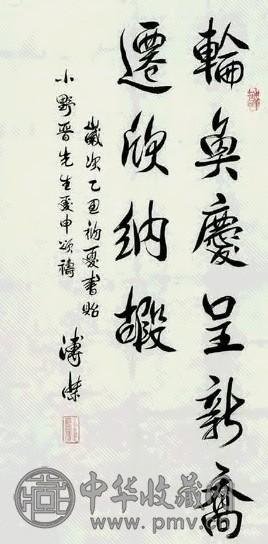 輪奐慶呈新喬
遷欣納嘏
歲次乙丑初夏書貽
小野晋先生爰申頌禱
溥傑
中华收藏网
www.pmv.cn